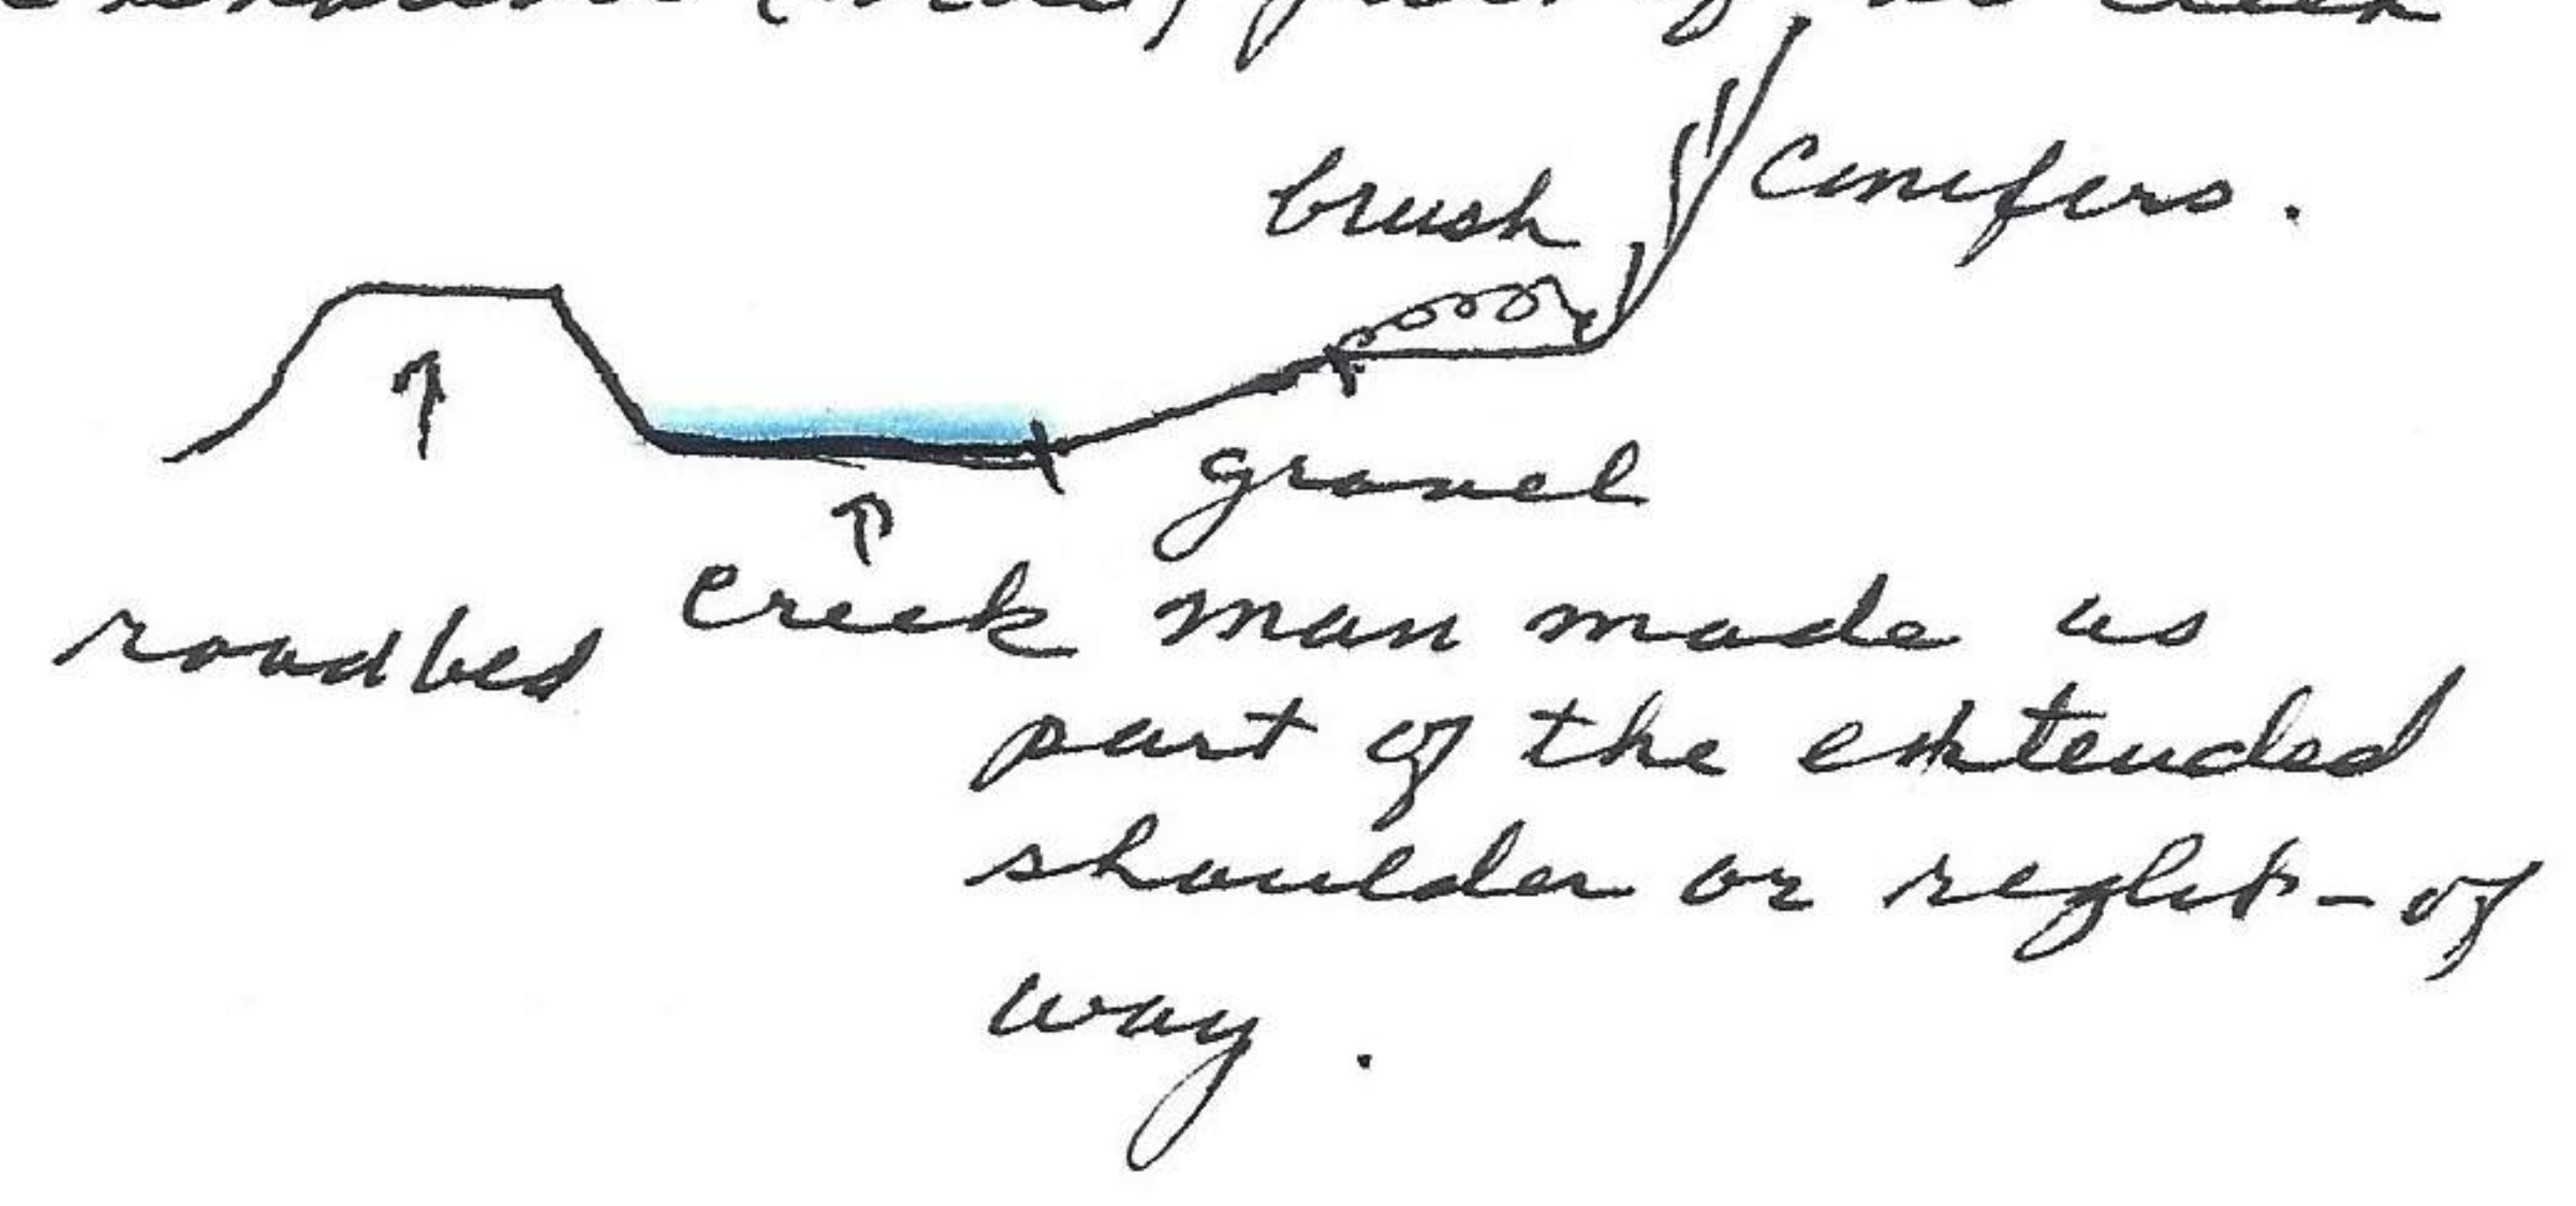 brush
conifers.
gravel
roadbed
creek man made as
part of the extended
shoulder or right-of
way.